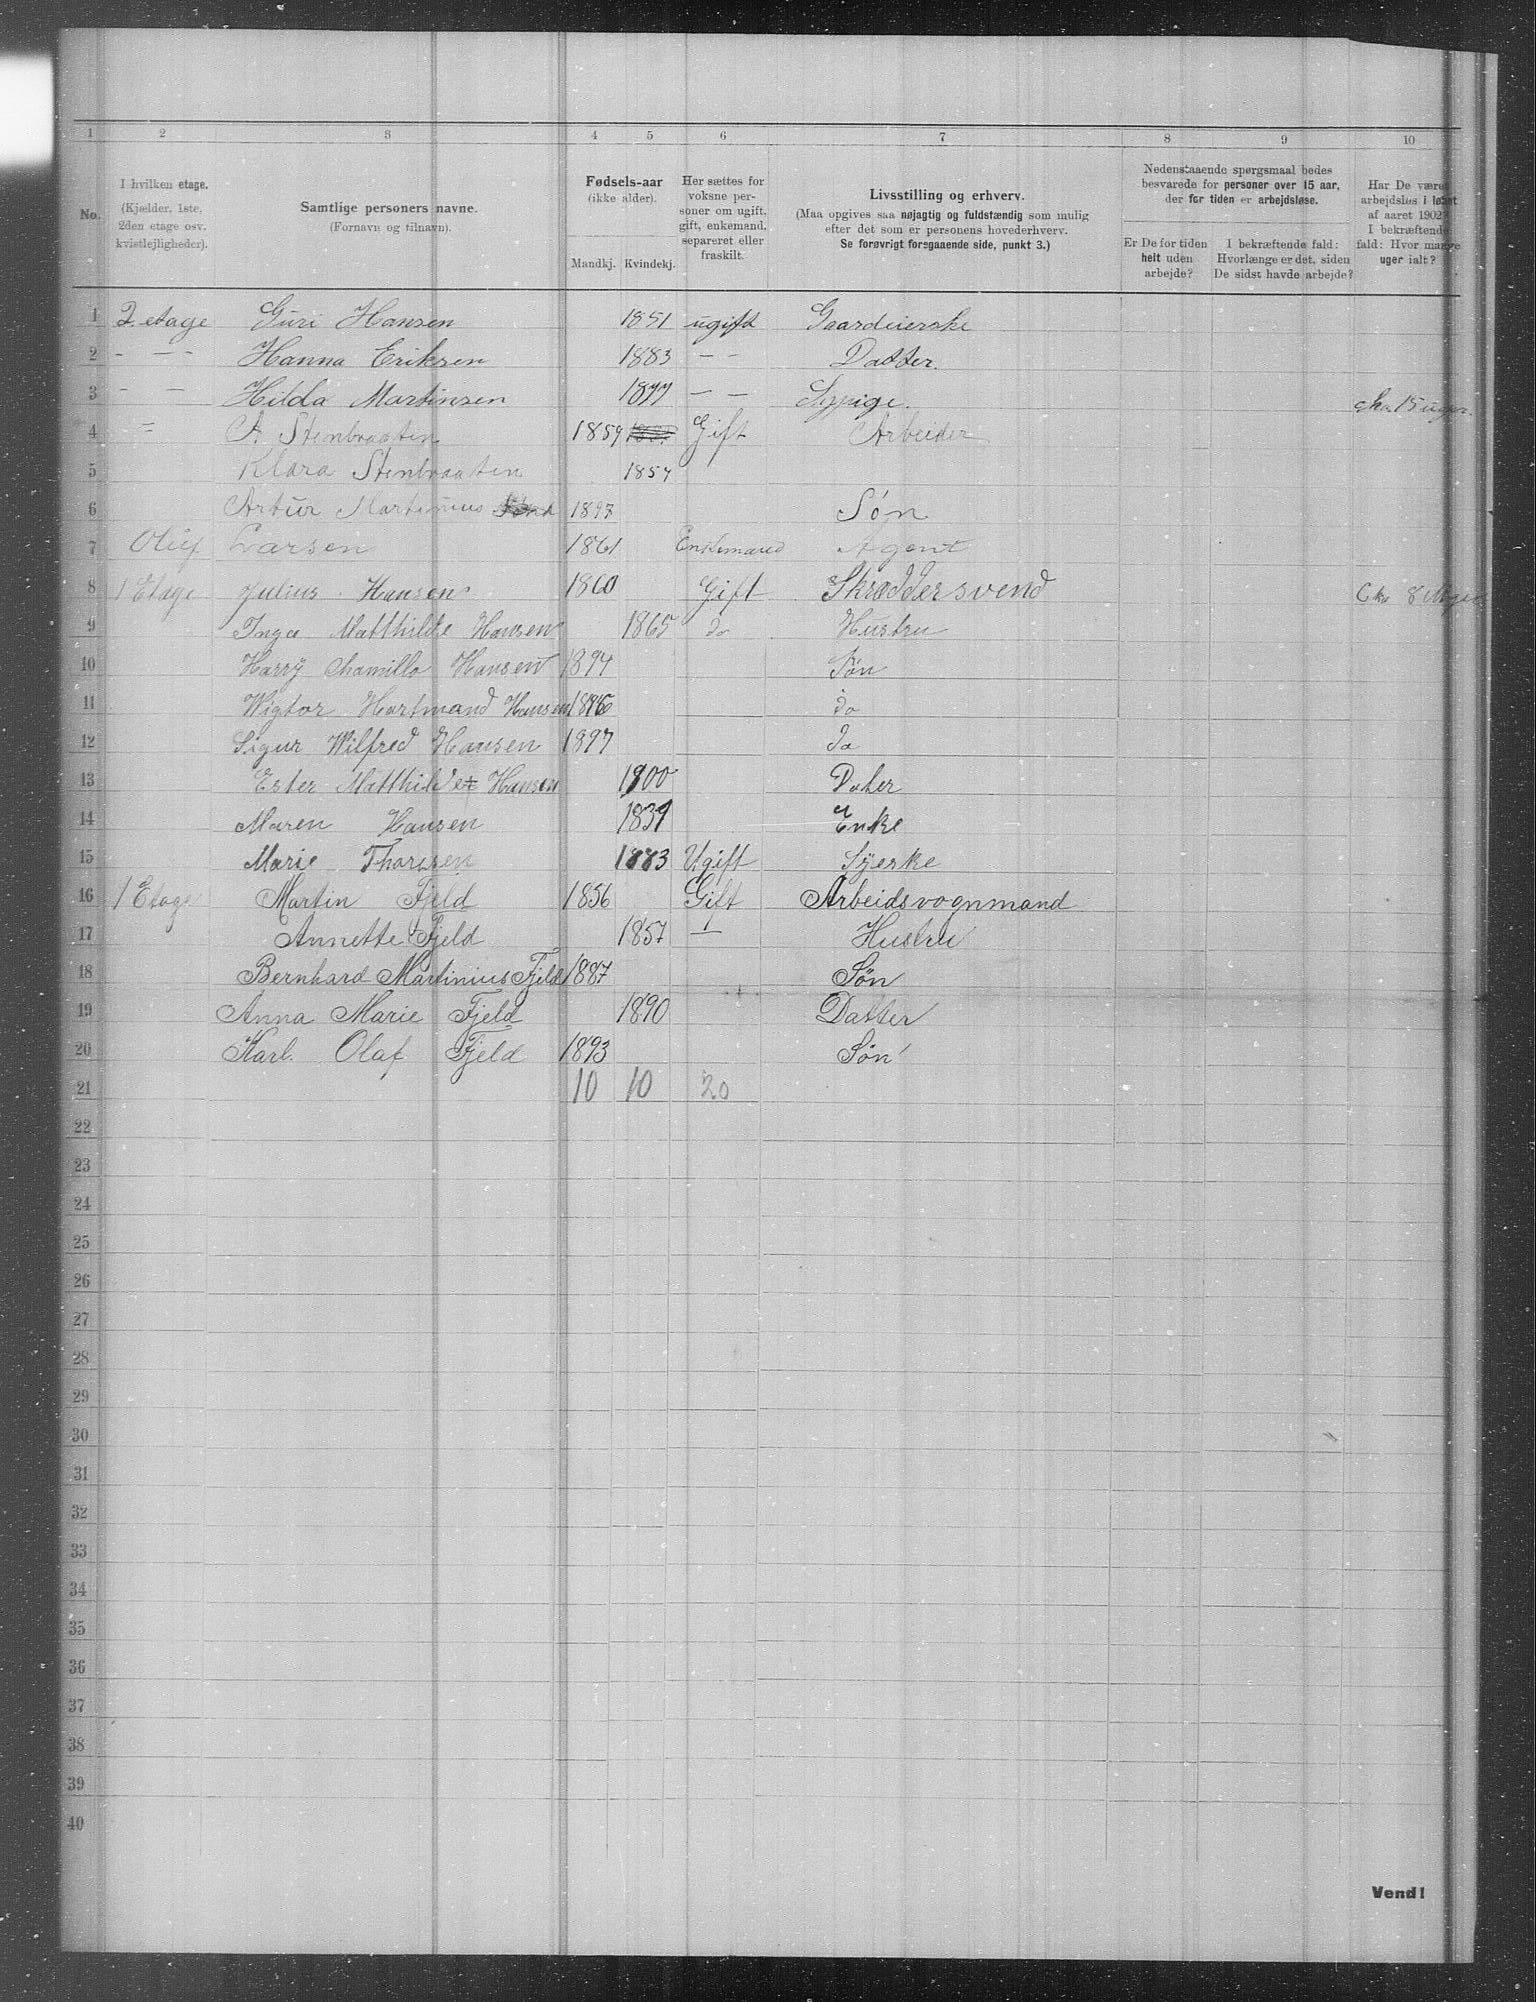 1 2 3 4 5 6 7 8 9 10
No.
I hvilken etage.
(Kjælder, 1ste.
2den etage osv.
kvistlejligheder).
Samtlige personers navne.
(Fornavn og tilnavn).
Fødsels-aar
(ikke alder).
Mandkj. Kvindekj.
Her sættes for
voksne per-
soner om ugift,
gift, enkemand,
separeret eller
fraskilt.
Livsstilling og erhverv.
(Maa opgives saa nøjagtig og fuldstændig som mulig
efter det som er personens hovederhverv.
Se forøvrigt forsgaaende side, punkt 3.)
Nedenstaaende spørgsmaal bedes
besvarede for personer over 15 aar,
der for tiden er arbejdsløse.
Er De for tiden
helt uden
arbejde?
I bekræftende fald:
Hvorlænge er det, siden
De sidst havde arbejde?
Har De været
arbejdsløs i løbet
af aaret 1902?
I bekræftende
fald: Hvor mange
uger ialt?
1 2 etage Guri Hansen 1851 ugift Gaardeierske
2 - - - Hanna Eriksen 1883 - - Datter.
3 - - Hilda Martinsen 1877 - - Sypige. cka 15 uger.
4 = A Stenbraaten 1859 Gift Arbeider
5 Klara Stenbraaten 1857
6 Artur Martinius 1897 Søn
7 Oluf Larsen 1861 Enkemand Agent
8 1 Etage Julius Hansen 1860 Gift Skræddersvend Cka 8
9 Inga Matthilde Hansen 1865 do Hustru
10 Harry Chamillo Hansen 1894 Søn
11 Wigtor Hartmand Hansen do
12 Sigur Wilfred Hansen 1897 do
13 Ester Matthilde Hansen 1900 Dater
14 Maren Hansen 1831 Enke
15 Marie Thoresen 1883 Ugift Syerske
16 1 Etage Martin Fjeld 1856 Gift Arbeidsvognmand
17 Annette Fjeld 1857 - Hustru
18 Bernhard Martinius Fjeld 1887 Søn
19 Anna Marie Fjeld 1890 Datter
20 Karl. Olaf Fjeld 1893 Søn
21 10 10 20
22
23
24
25
26
27
28
29
30
31
32
33
34
35
36
37
38
39
40
Vend!